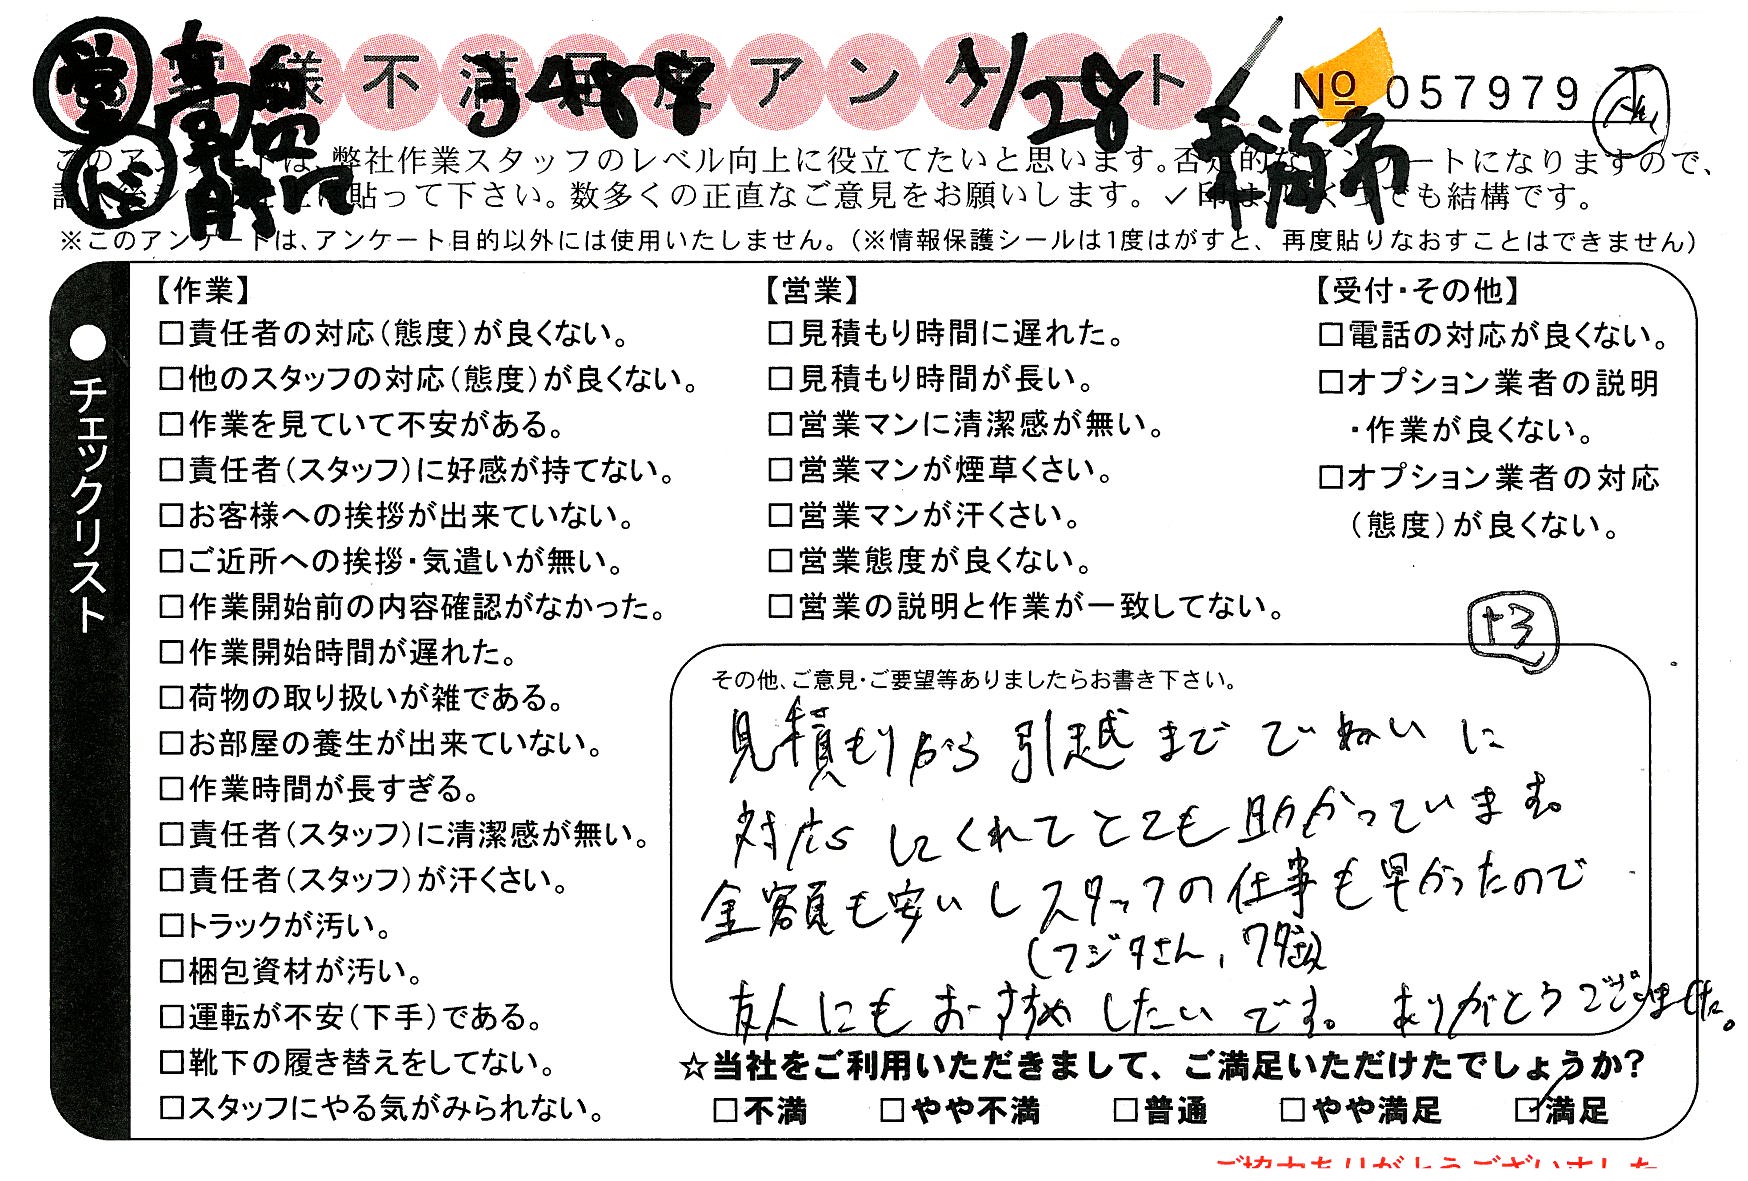 お客様不満足度アンケート
3488
1/28
№ 057979
このアンケートは、弊社作業スタッフのレベル向上に役立てたいと思います。否定的なアンケートになりますので、
貼って下さい。数多くの正直なご意見をお願いします。✓印はいくつでも結構です。
※このアンケートは、アンケート目的以外には使用いたしません。(※情報保護シールは1度はがすと、再度貼りなおすことはできません)
●チェックリスト
【作業】
□責任者の対応(態度)が良くない。
□他のスタッフの対応(態度)が良くない。
□作業を見ていて不安がある。
□責任者(スタッフ)に好感が持てない。
□お客様への挨拶が出来ていない。
□ご近所への挨拶・気遣いが無い。
□作業開始前の内容確認がなかった。
□作業開始時間が遅れた。
□荷物の取り扱いが雑である。
□お部屋の養生が出来ていない。
□作業時間が長すぎる。
□責任者(スタッフ)に清潔感が無い。
□責任者(スタッフ)が汗くさい。
□トラックが汚い。
□梱包資材が汚い。
□運転が不安(下手)である。
□靴下の履き替えをしてない。
□スタッフにやる気がみられない。
【営業】
□見積もり時間に遅れた。
□見積もり時間が長い。
□営業マンに清潔感が無い。
□営業マンが煙草くさい。
□営業マンが汗くさい。
□営業態度が良くない。
□営業の説明と作業が一致してない。
【受付・その他】
□電話の対応が良くない。
□オプション業者の説明
・作業が良くない。
□オプション業者の対応
(態度)が良くない。
+3
その他、ご意見・ご要望等ありましたらお書き下さい。
見積もりから引越まで ていねいに
対応してくれてとても助かっています。
金額も安いしスタッフの仕事も早かったので
(フジタさん、ワダさん)
友人にもおすすめしたいです。ありがとうございました。
☆当社をご利用いただきまして、ご満足いただけたでしょうか?
□不満 □やや不満 □普通 □やや満足 ☑満足
ご協力ありがとうございました